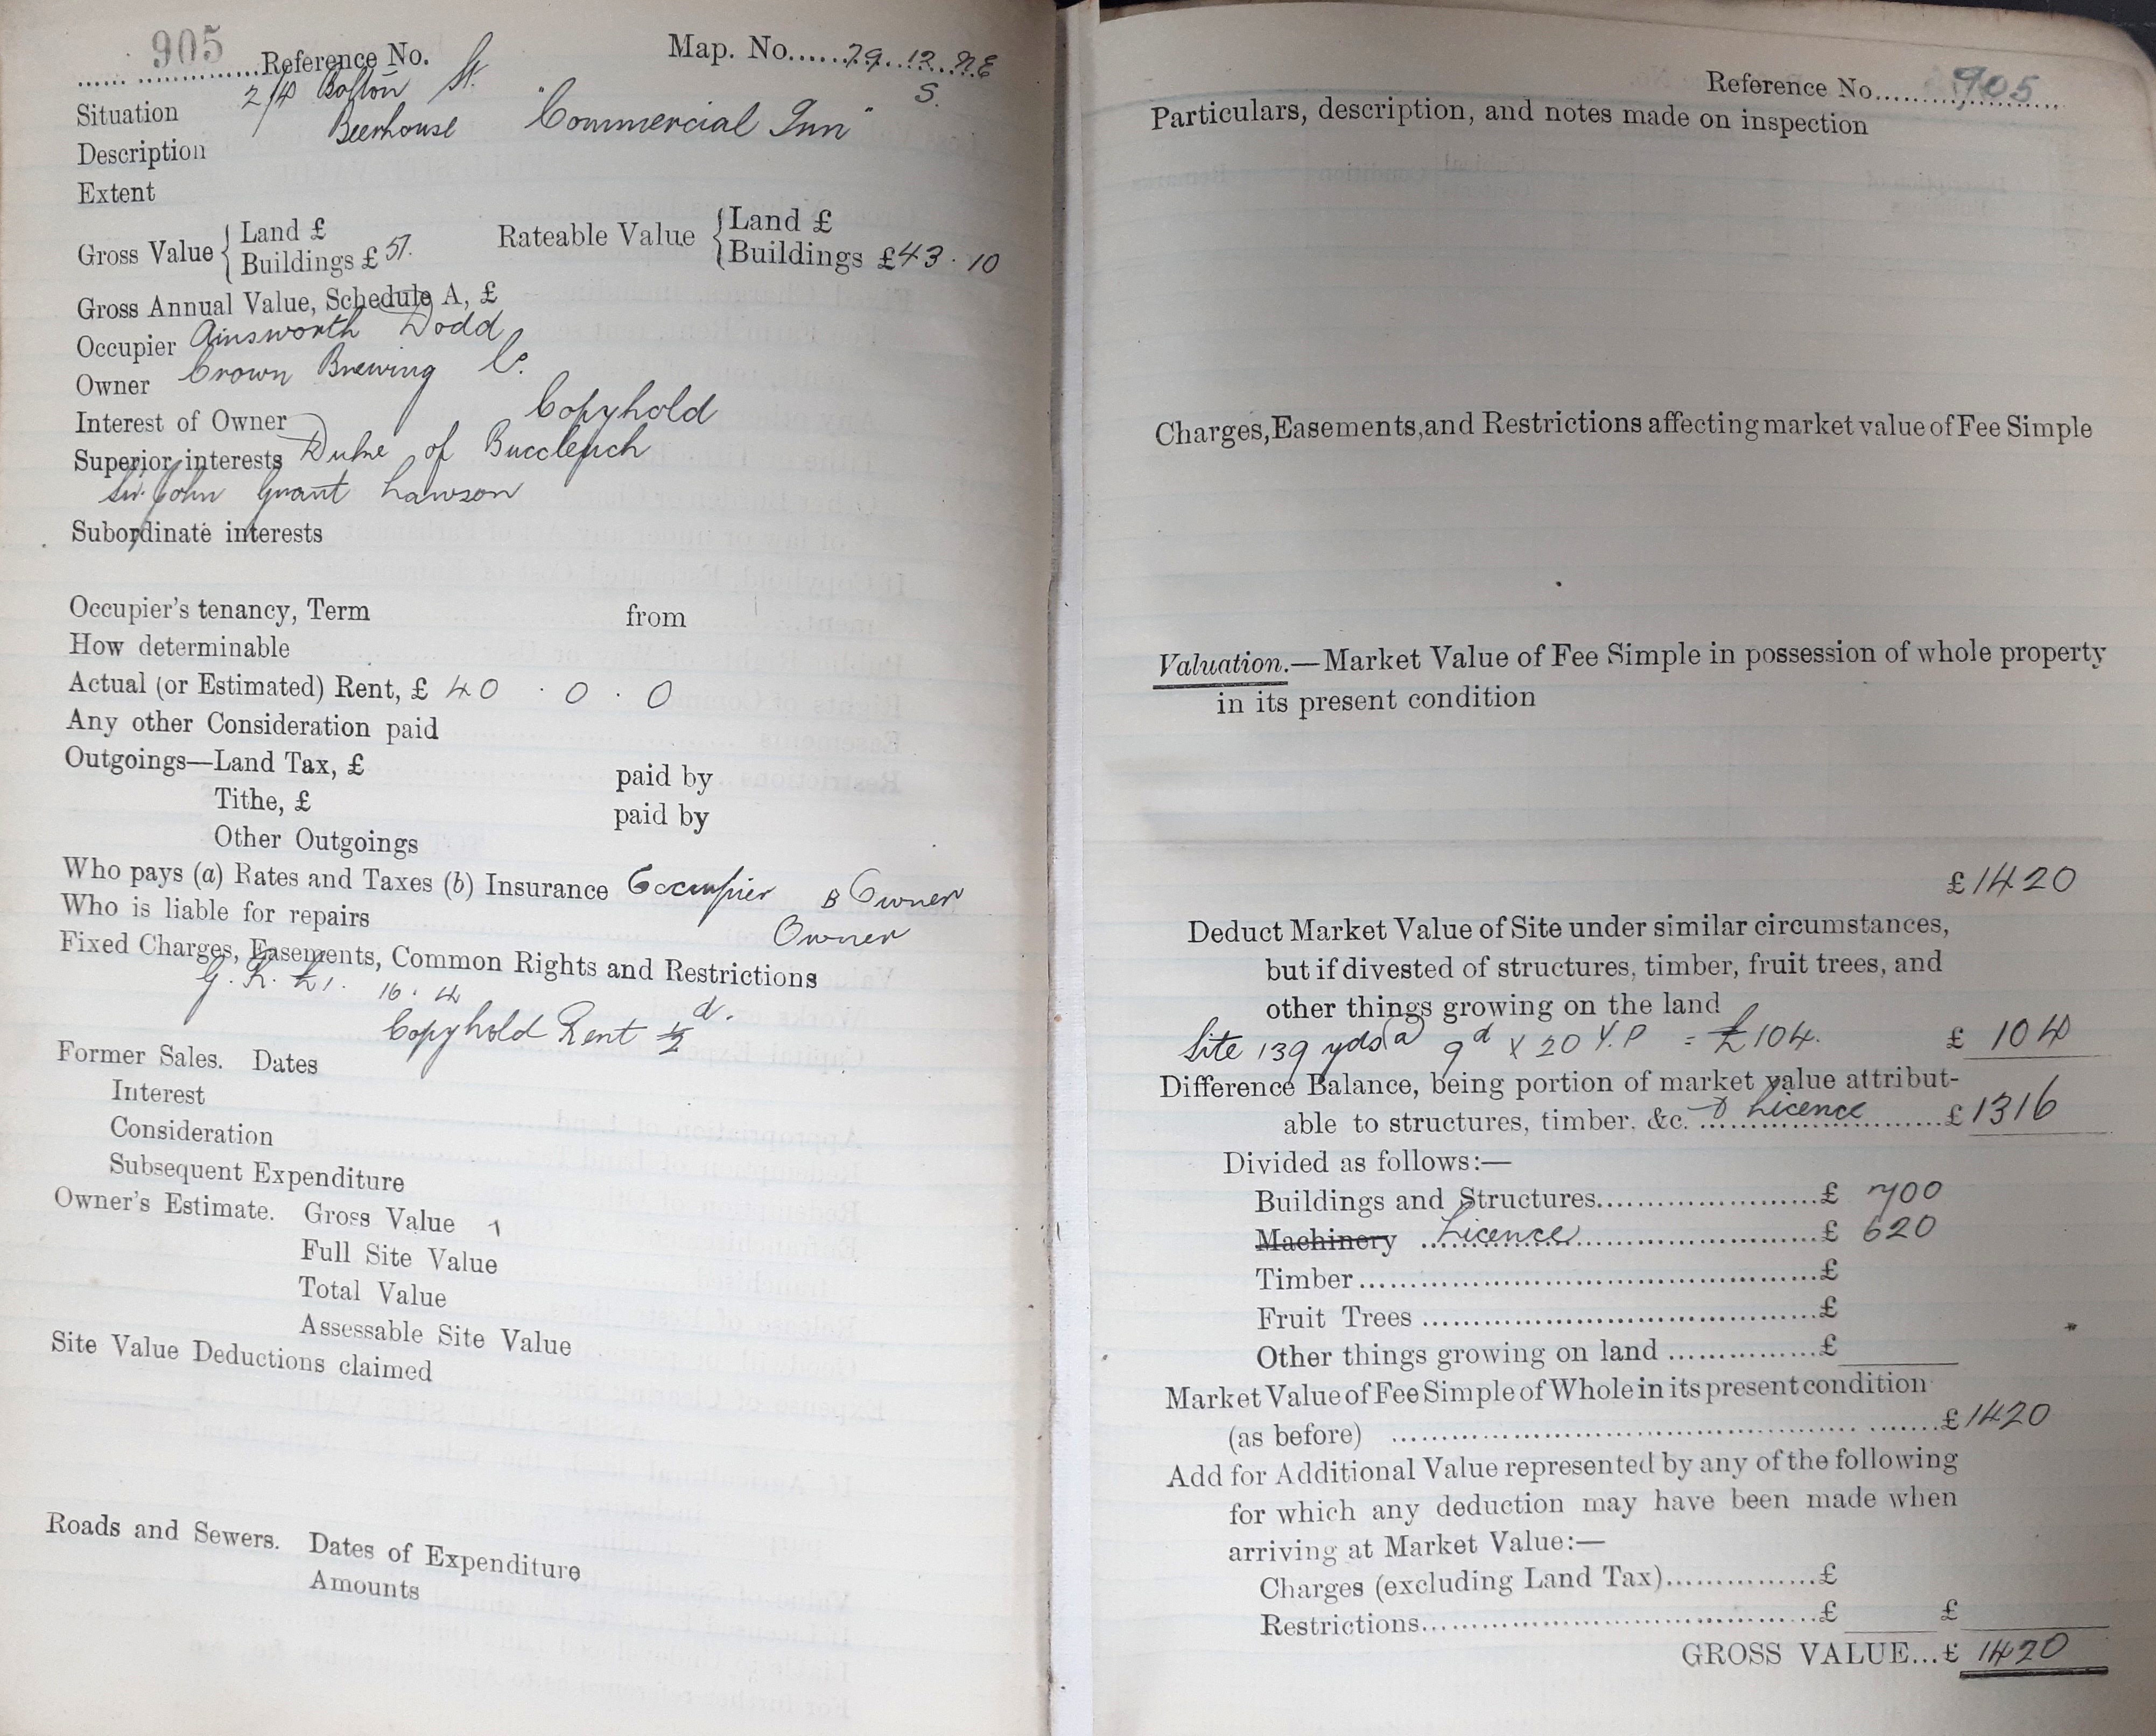 905 Reference No. Map. No. 79.12.NE
S.
Situation 2/4 Bolton St.
Description Beerhouse "Commercial Inn"
Extent
Gross Value { Land £
Buildings £ 57. Rateable Value { Land £
Buildings £43.10
Gross Annual Value, Schedule A, £
Occupier Ainsworth Dodd
Owner Crown Brewing Co.
Interest of Owner Copyhold
Superior interests Duke of Buccleuch
Sir John Grant Lawson
Subordinate interests
Occupier's tenancy, Term from
How determinable
Actual (or Estimated) Rent, £ 40 . 0 . 0
Any other Consideration paid
Outgoings—Land Tax, £ paid by
Tithe, £ paid by
Other Outgoings
Who pays (a) Rates and Taxes (b) Insurance Occupier B Owner
Who is liable for repairs Owner
Fixed Charges, Easements, Common Rights and Restrictions
G. R. £1. 16. 4
Copyhold Rent ½d.
Former Sales. Dates
Interest
Consideration
Subsequent Expenditure
Owner's Estimate. Gross Value
Full Site Value
Total Value
Assessable Site Value
Site Value Deductions claimed
Roads and Sewers. Dates of Expenditure
Amounts
Reference No. 905
Particulars, description, and notes made on inspection
Charges, Easements, and Restrictions affecting market value of Fee Simple
Valuation.—Market Value of Fee Simple in possession of whole property
in its present condition
£1420
Deduct Market Value of Site under similar circumstances,
but if divested of structures, timber, fruit trees, and
other things growing on the land
Site 139 yds @ 9d x 20 Y.P = £104. £ 104
Difference Balance, being portion of market value attribut-
able to structures, timber. &c. & Licence £1316
Divided as follows:—
Buildings and Structures £ 700
Machinery Licence £ 620
Timber £
Fruit Trees £
Other things growing on land £
Market Value of Fee Simple of Whole in its present condition
(as before) £1420
Add for Additional Value represented by any of the following
for which any deduction may have been made when
arriving at Market Value:—
Charges (excluding Land Tax) £
Restrictions £ £
GROSS VALUE... £ 1420